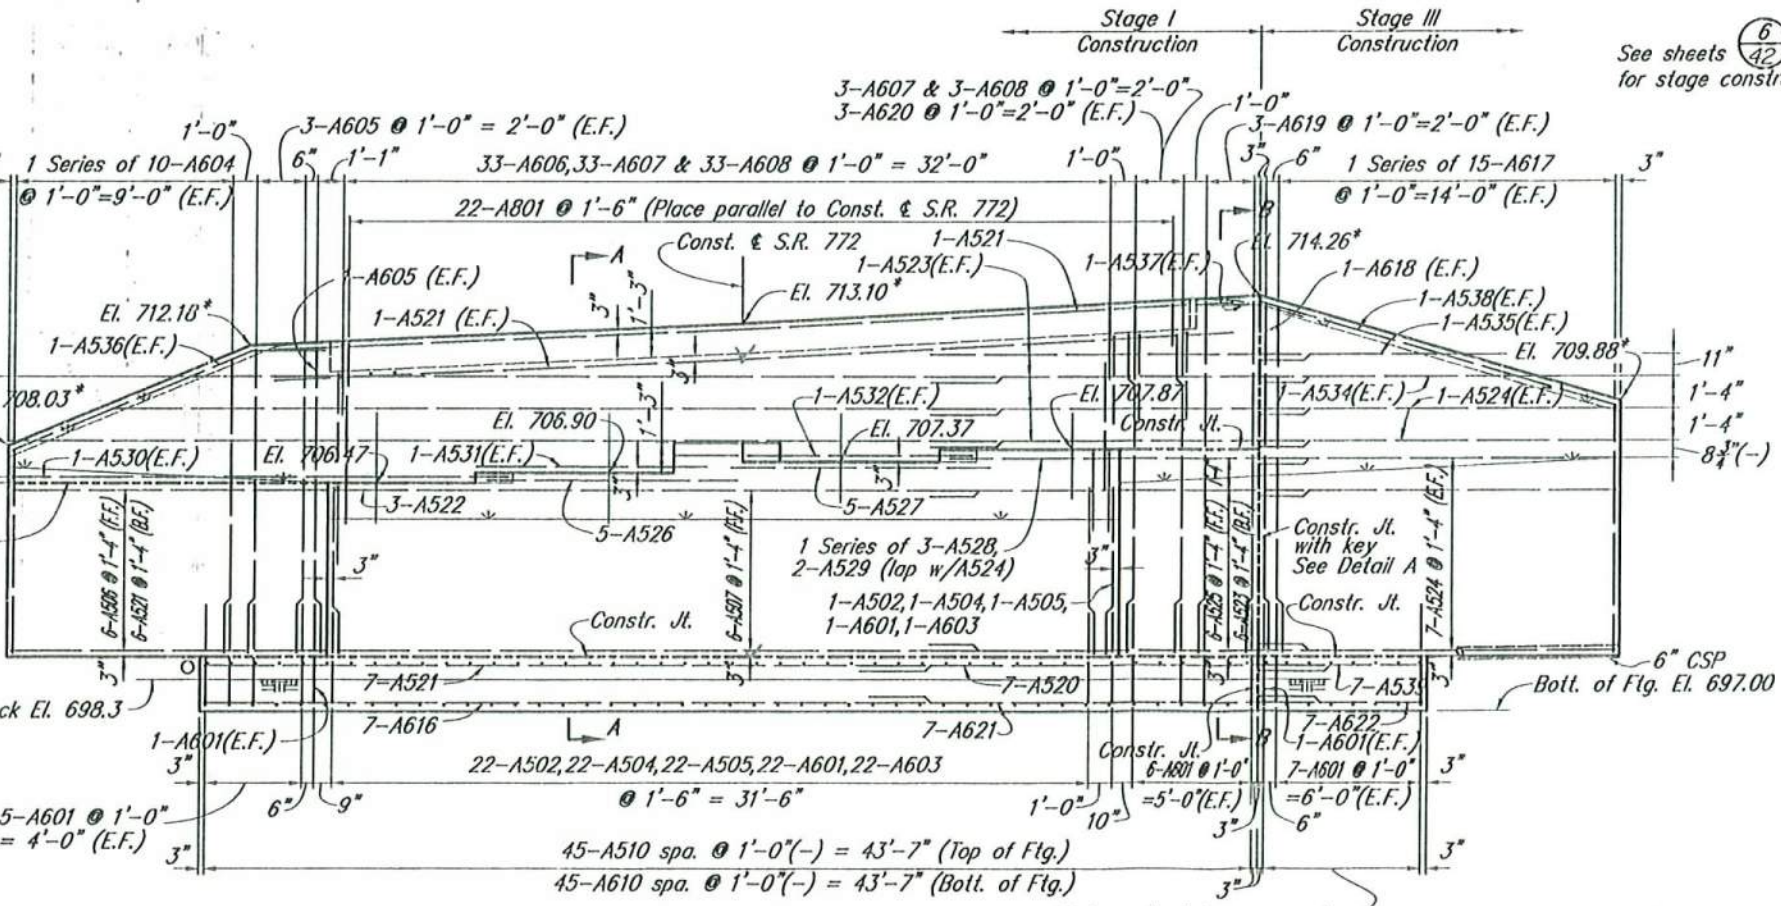 Stage I
Construction
Stage III
Construction
6
42
See sheets
for stage constr
3-A607 & 3-A608 @ 1'-0"=2'-0"
3-A620 @ 1'-0"=2'-0" (E.F.)
1'-0"
3-A619 @ 1'-0"=2'-0" (E.F.)
1'-0"
3-A605 @ 1'-0" = 2'-0" (E.F.)
1 Series of 10-A604
@ 1'-0"=9'-0" (E.F.)
6"
1'-1"
33-A606,33-A607 & 33-A608 @ 1'-0" = 32'-0"
1'-0"
3"
6"
1 Series of 15-A617
@ 1'-0"=14'-0" (E.F.)
3"
22-A801 @ 1'-6" (Place parallel to Const. ℄ S.R. 772)
B
A
Const. ℄ S.R. 772
1-A521
1-A523(E.F.)
1-A537(E.F.)
El. 714.26*
1-A618 (E.F.)
1-A605 (E.F.)
El. 713.10*
3"
1'-3"
1-A538(E.F.)
1-A535(E.F.)
El. 712.18*
1-A521 (E.F.)
1-A536(E.F.)
3"
El. 709.88*
11"
1'-4"
1'-4"
8¾"(-)
708.03*
1-A532(E.F.)
El. 707.87
1-A534(E.F.)
1-A524(E.F.)
El. 706.90
1'-3"
El. 707.37
Constr. Jt.
1-A530(E.F.)
El. 706.47
1-A531(E.F.)
3"
3"
3-A522
5-A526
5-A527
6-A506 @ 1'-4" (F.F.)
6-A521 @ 1'-4" (B.F.)
6-A507 @ 1'-4" (F.F.)
6-A525 @ 1'-4" (F.F.)
6-A523 @ 1'-4" (B.F.)
7-A524 @ 1'-4" (E.F.)
Constr. Jt.
with key
See Detail A
1 Series of 3-A528,
2-A529 (lap w/A524)
3"
3"
1-A502,1-A504,1-A505,
1-A601,1-A603
Constr. Jt.
Constr. Jt.
3"
3"
3"
3"
7-A521
7-A520
7-A539
6" CSP
Bott. of Ftg. El. 697.00
ck El. 698.3
7-A616
7-A621
7-A622
1-A601(E.F.)
A
Constr. Jt.
B
1-A601(E.F.)
3"
22-A502,22-A504,22-A505,22-A601,22-A603
@ 1'-6" = 31'-6"
6-A601 @ 1'-0"
=5'-0"(E.F.)
7-A601 @ 1'-0"
=6'-0"(E.F.)
3"
5-A601 @ 1'-0"
= 4'-0" (E.F.)
6"
9"
1'-0"
10"
3"
6"
3"
45-A510 spa. @ 1'-0"(-) = 43'-7" (Top of Ftg.)
45-A610 spa. @ 1'-0"(-) = 43'-7" (Bott. of Ftg.)
3"
3"